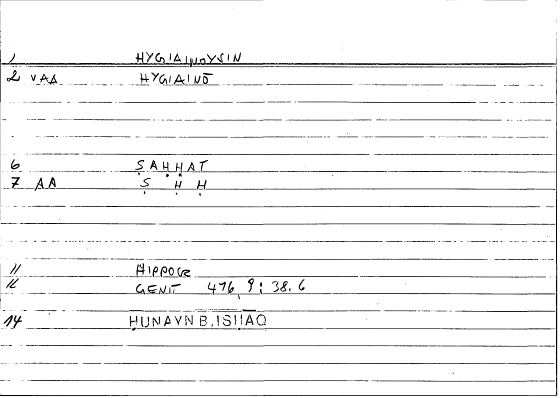 1 HYGIAINOYSIN
2 VAA HYGIAINŌ
6 ṢAḤḤAT
7 AA Ṣ Ḥ Ḥ
11 HIPPOCR
12 GENIT 476, 9 : 38.6
14 ḤUNAYN B. ISḤĀQ